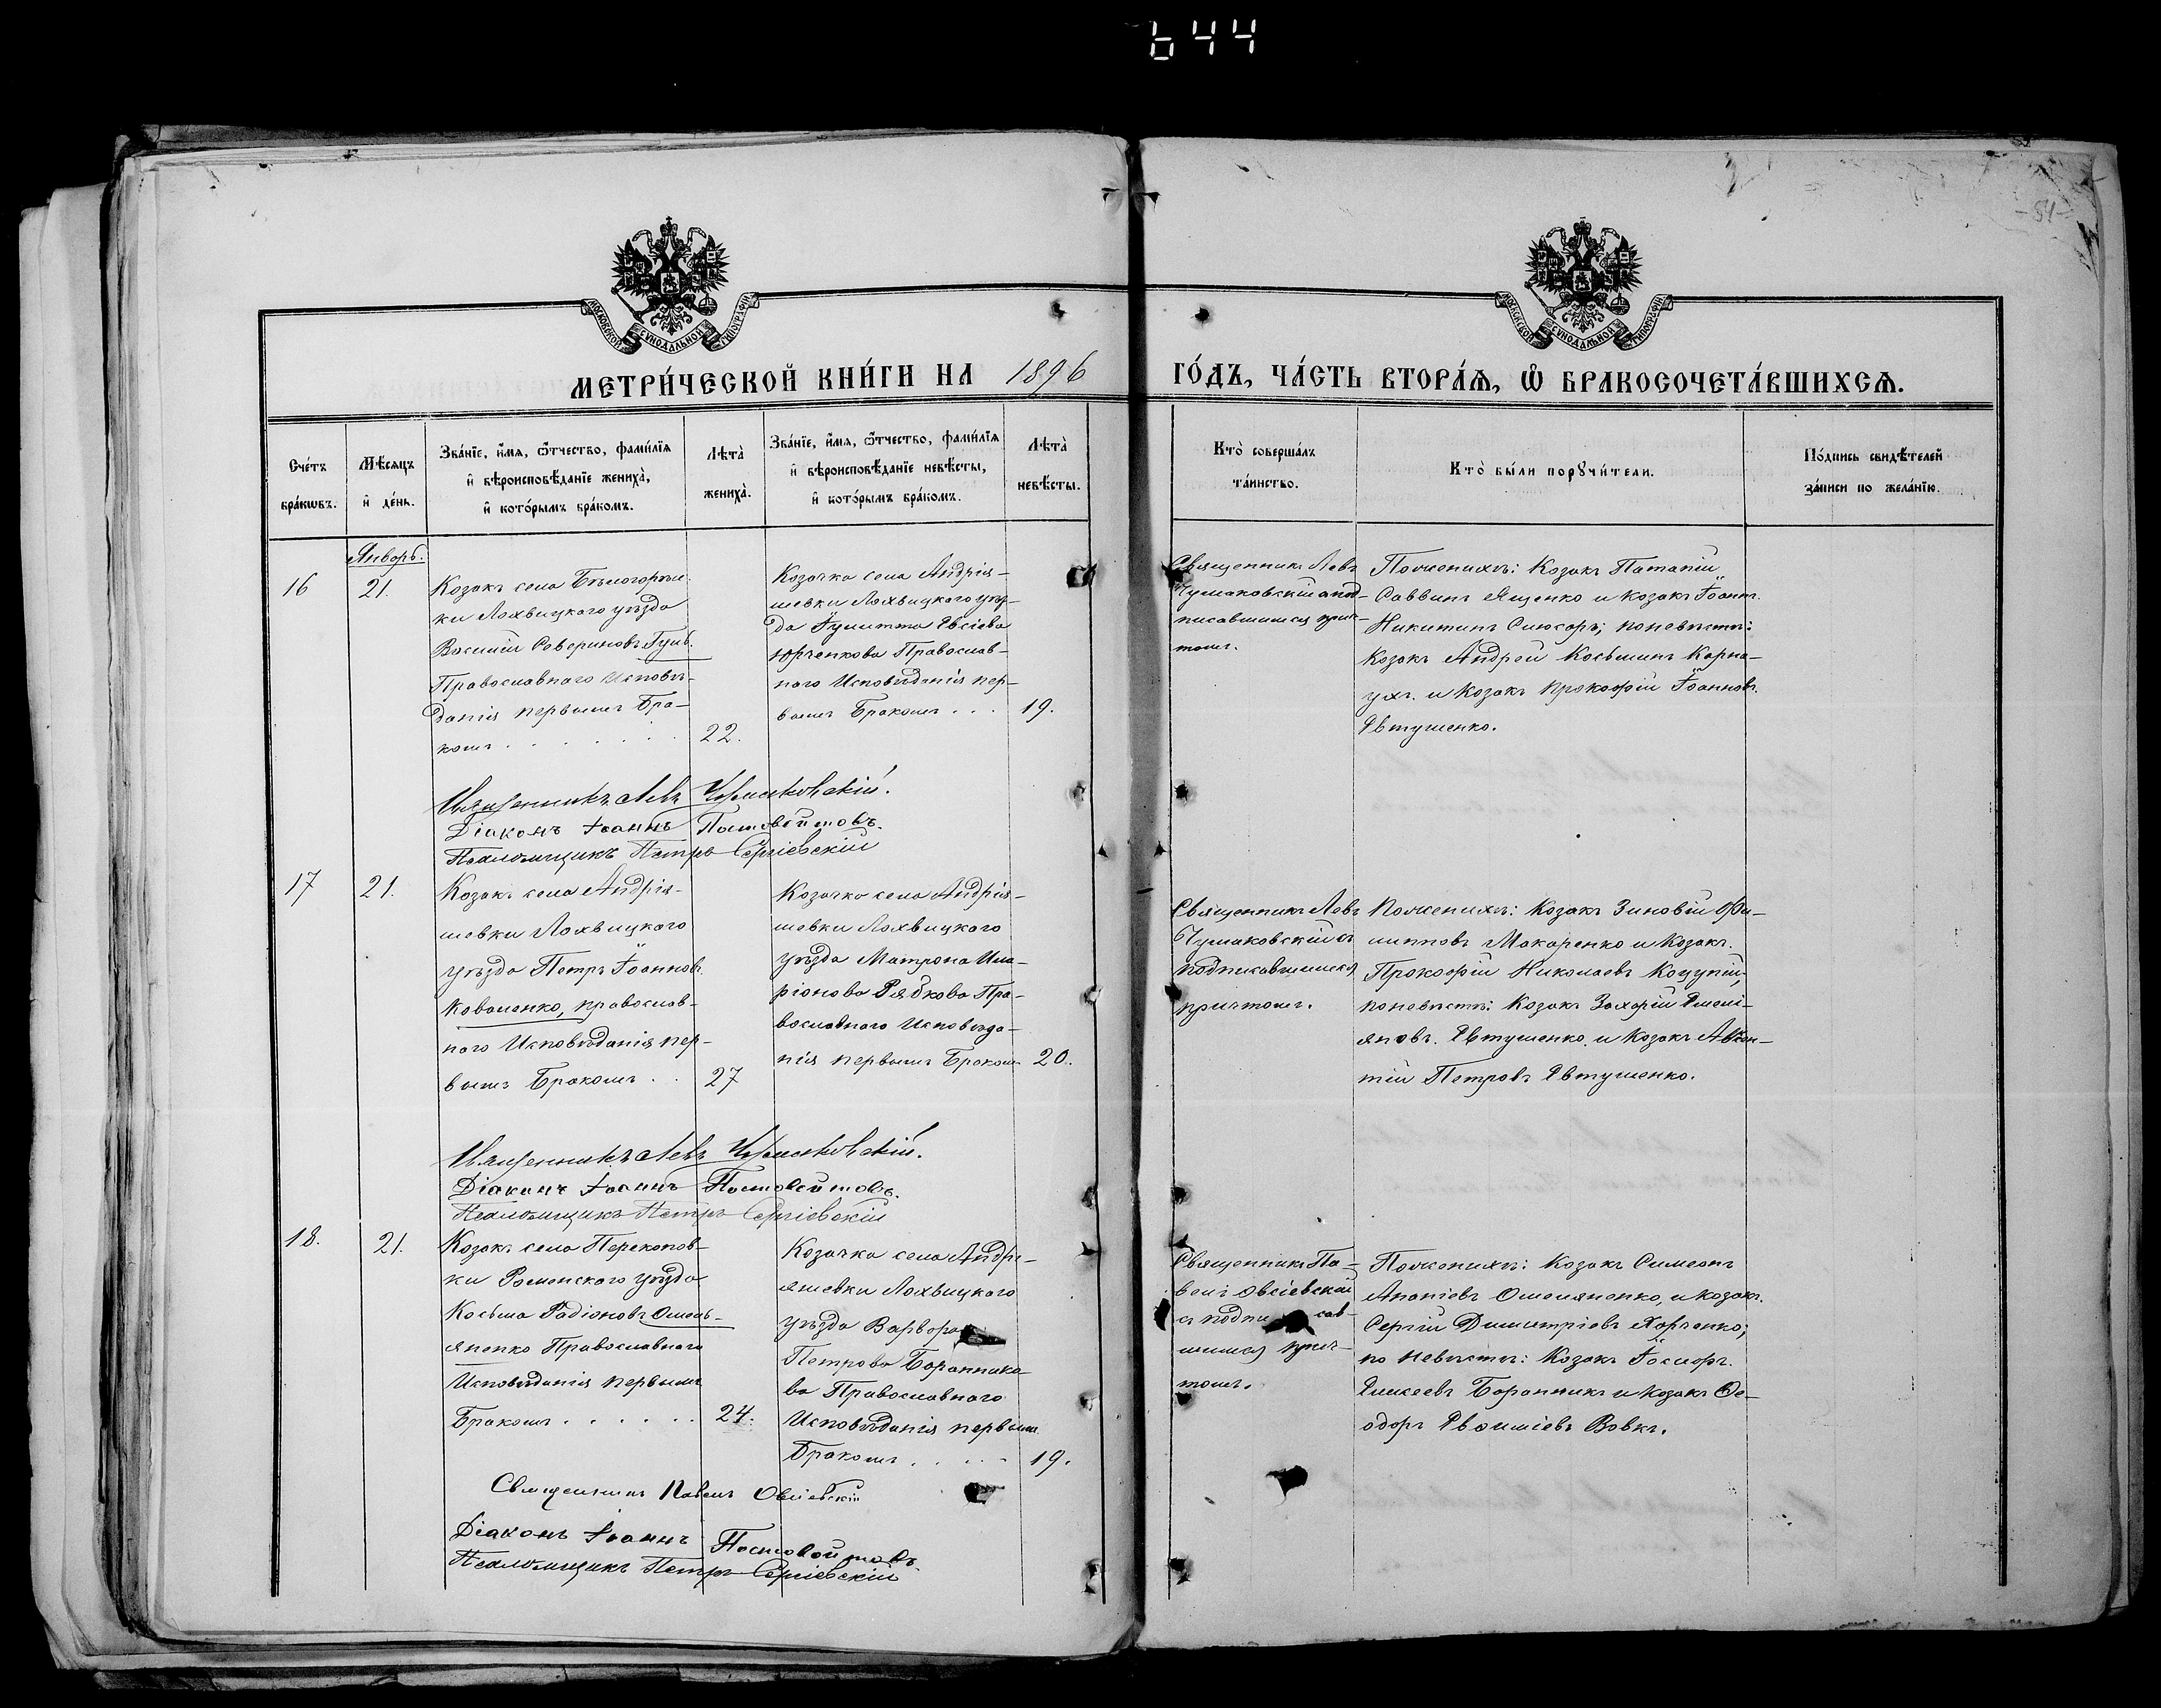 644
54
МОСКОВСКОЙ СѴНОДАЛЬНОЙ ТИПОГРАФІИ
МОСКОВСКОЙ СѴНОДАЛЬНОЙ ТИПОГРАФІИ
МЕТРИ́ЧЕСКОЙ КНИ́ГИ НА 1896 ГО́ДЪ, ЧА́СТЬ ВТОРА́Ѧ, Ѽ БРАКОСОЧЕТА́ВШИХСѦ.
Сче́тъ
бра́кѡвъ.
Мѣ́сяцъ
и҆ де́нь.
Зва́нїе, и҆́мя, ѻ҆́тчество, фами́лїя
и҆ вѣроисповѣ́данїе жениха̀,
и҆ кото́рымъ бра́комъ.
Лѣта̀
жениха̀.
Зва́нїе, и҆́мя, ѻ҆́тчество, фами́лїя
и҆ вѣроисповѣ́данїе невѣ́сты,
и҆ кото́рымъ бра́комъ.
Лѣта̀
невѣ́сты.
Кто̀ соверша́лъ
та́инство.
Кто̀ бы́ли порꙋчи́тели.
По́дпись свидѣ́телей
за́писи по жела́нїю.
Январь.
16
21.
Козакъ села Бѣлогорѣл
ки Лохвицкаго уѣзда
Василій Севериновъ Гуль
Православнаго Исповѣ-
данія первымъ Бра-
комъ . . . . . . .
22.
Козачка села Андрія-
шевки Лохвицкаго уѣз-
да Іулитта Евсіева
Юрченкова Православ-
наго Исповѣданія пер-
вымъ Бракомъ . . .
19.
Священникъ Левъ
Чумаковскій съ под-
писавшимся прич-
томъ.
По женихѣ: Козакъ Патапій
Саввинъ Ященко и козакъ Іоаннъ
Никитинъ Слюсарь; по невѣстѣ:
Козакъ Андрей Косьминъ Карна-
ухъ и козакъ Прокофій Іоанновъ
Евтушенко.
Священникъ Левъ Чумаковскій.
Діаконъ Іоаннъ Постовойтовъ.
Псаломщикъ Петръ Сергіевскій
17
21.
Козакъ села Андрія-
шевки Лохвицкаго
уѣзда Петръ Іоанновъ
Коваленко, православ-
наго Исповѣданія пер-
вымъ Бракомъ . .
27
Козачка села Андрія-
шевки Лохвицкаго
уѣзда Матрона Ила-
ріонова Рябкова Пра-
вославнаго Исповѣда-
нія первымъ Бракомъ
20.
Священникъ Левъ
Чумаковскій съ
подписавшимся
причтомъ.
По женихѣ: Козакъ Зиновій Фи-
липповъ Макаренко и Козакъ
Прокофій Николаевъ Коцупій;
по невѣстѣ: Козакъ Захарій Емелі-
яновъ Евтушенко и Козакъ Авксен-
тій Петровъ Евтушенко.
Священникъ Левъ Чумаковскій.
Діаконъ Іоаннъ Постовойтовъ.
Псаломщикъ Петръ Сергіевскій
18.
21.
Козакъ села Перекопов-
ки Роменскаго уѣзда
Косьма Радіоновъ Омель-
яненко Православнаго
Исповѣданія первымъ
Бракомъ . . . . . .
24.
Козачка села Андрі-
яшевки Лохвицкаго
уѣзда Варвара
Петрова Баранника-
ва Православнаго
Исповѣданія первымъ
Бракомъ . . . . .
19.
Священникъ Па-
велъ Овсіевскій
съ подписав-
шимся прич-
томъ.
По женихѣ: Козакъ Симеонъ
Ананіевъ Омеляненко, и козакъ
Сергій Димитріевъ Харченко;
по невѣстѣ: Козакъ Іосифъ
Алексеевъ Баранникъ и козакъ Ѳе-
одоръ Евфиміевъ Вовкъ.
Священникъ Павелъ Овсіевскій
Діаконъ Іоаннъ Постовойтовъ.
Псаломщикъ Петръ Сергіевскій